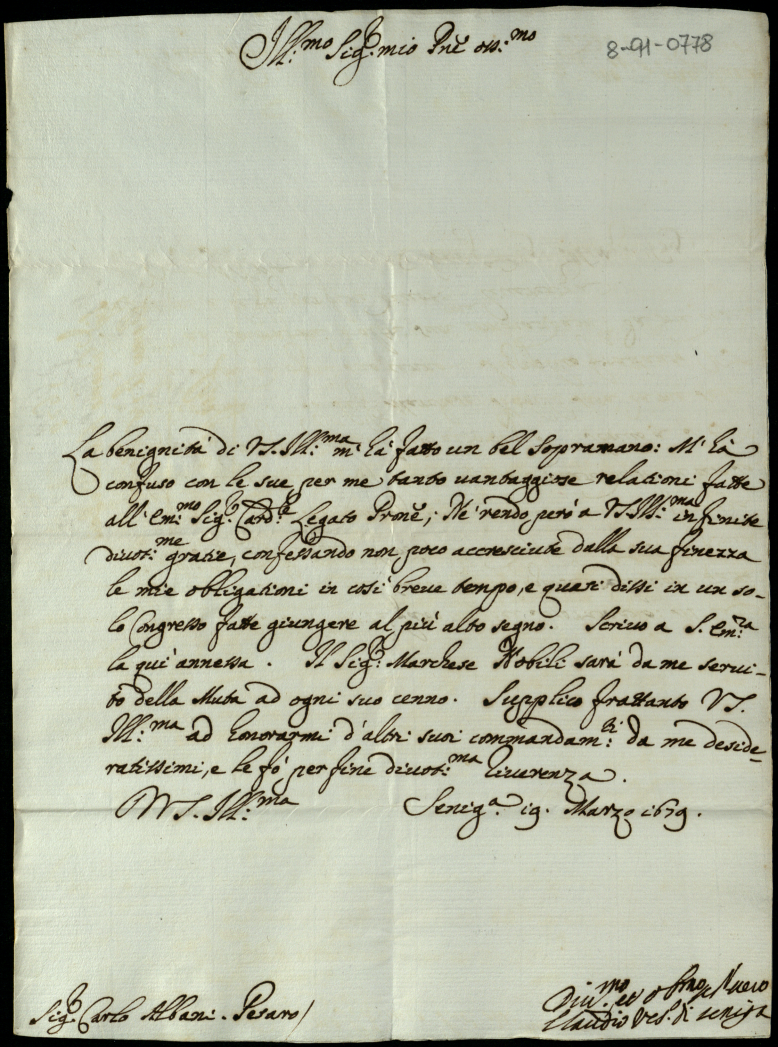 Ill:mo Sig.r mio Prñe oss:mo
8-91-0778
La benignità di VS. Ill:ma m'hà fatto un bel Sopramano: M'hà
confuso con le sue per me tanto uantaggiose relationi fatte
all'Em:mo Sig.r Card.e Legato Pronẽ; Ne rendo però a VS Ill:ma infinite
diuot:me gratie, confessando non poco accresciute dalla sua finezza
le mie obligationi in così breue tempo, e quasi dissi in un so-
lo Congresso fatte giungere al più alto segno. Scriuo a S. Em:za
la qui annessa. Il Sig.r Marchese Nobili sarà da me serui-
to della Muta ad ogni suo cenno. Supplico frattanto VS.
Ill:ma ad honorarmi d'altri suoi commandam:ti da me deside-
ratissimi, e le fò per fine diuot:ma riuerenza.
VS. Ill:ma Senig.a 19. Marzo 1679.
Sig.r Carlo Albani. Pesaro/
Diu:mo et oblmo
Claudio Ves. di